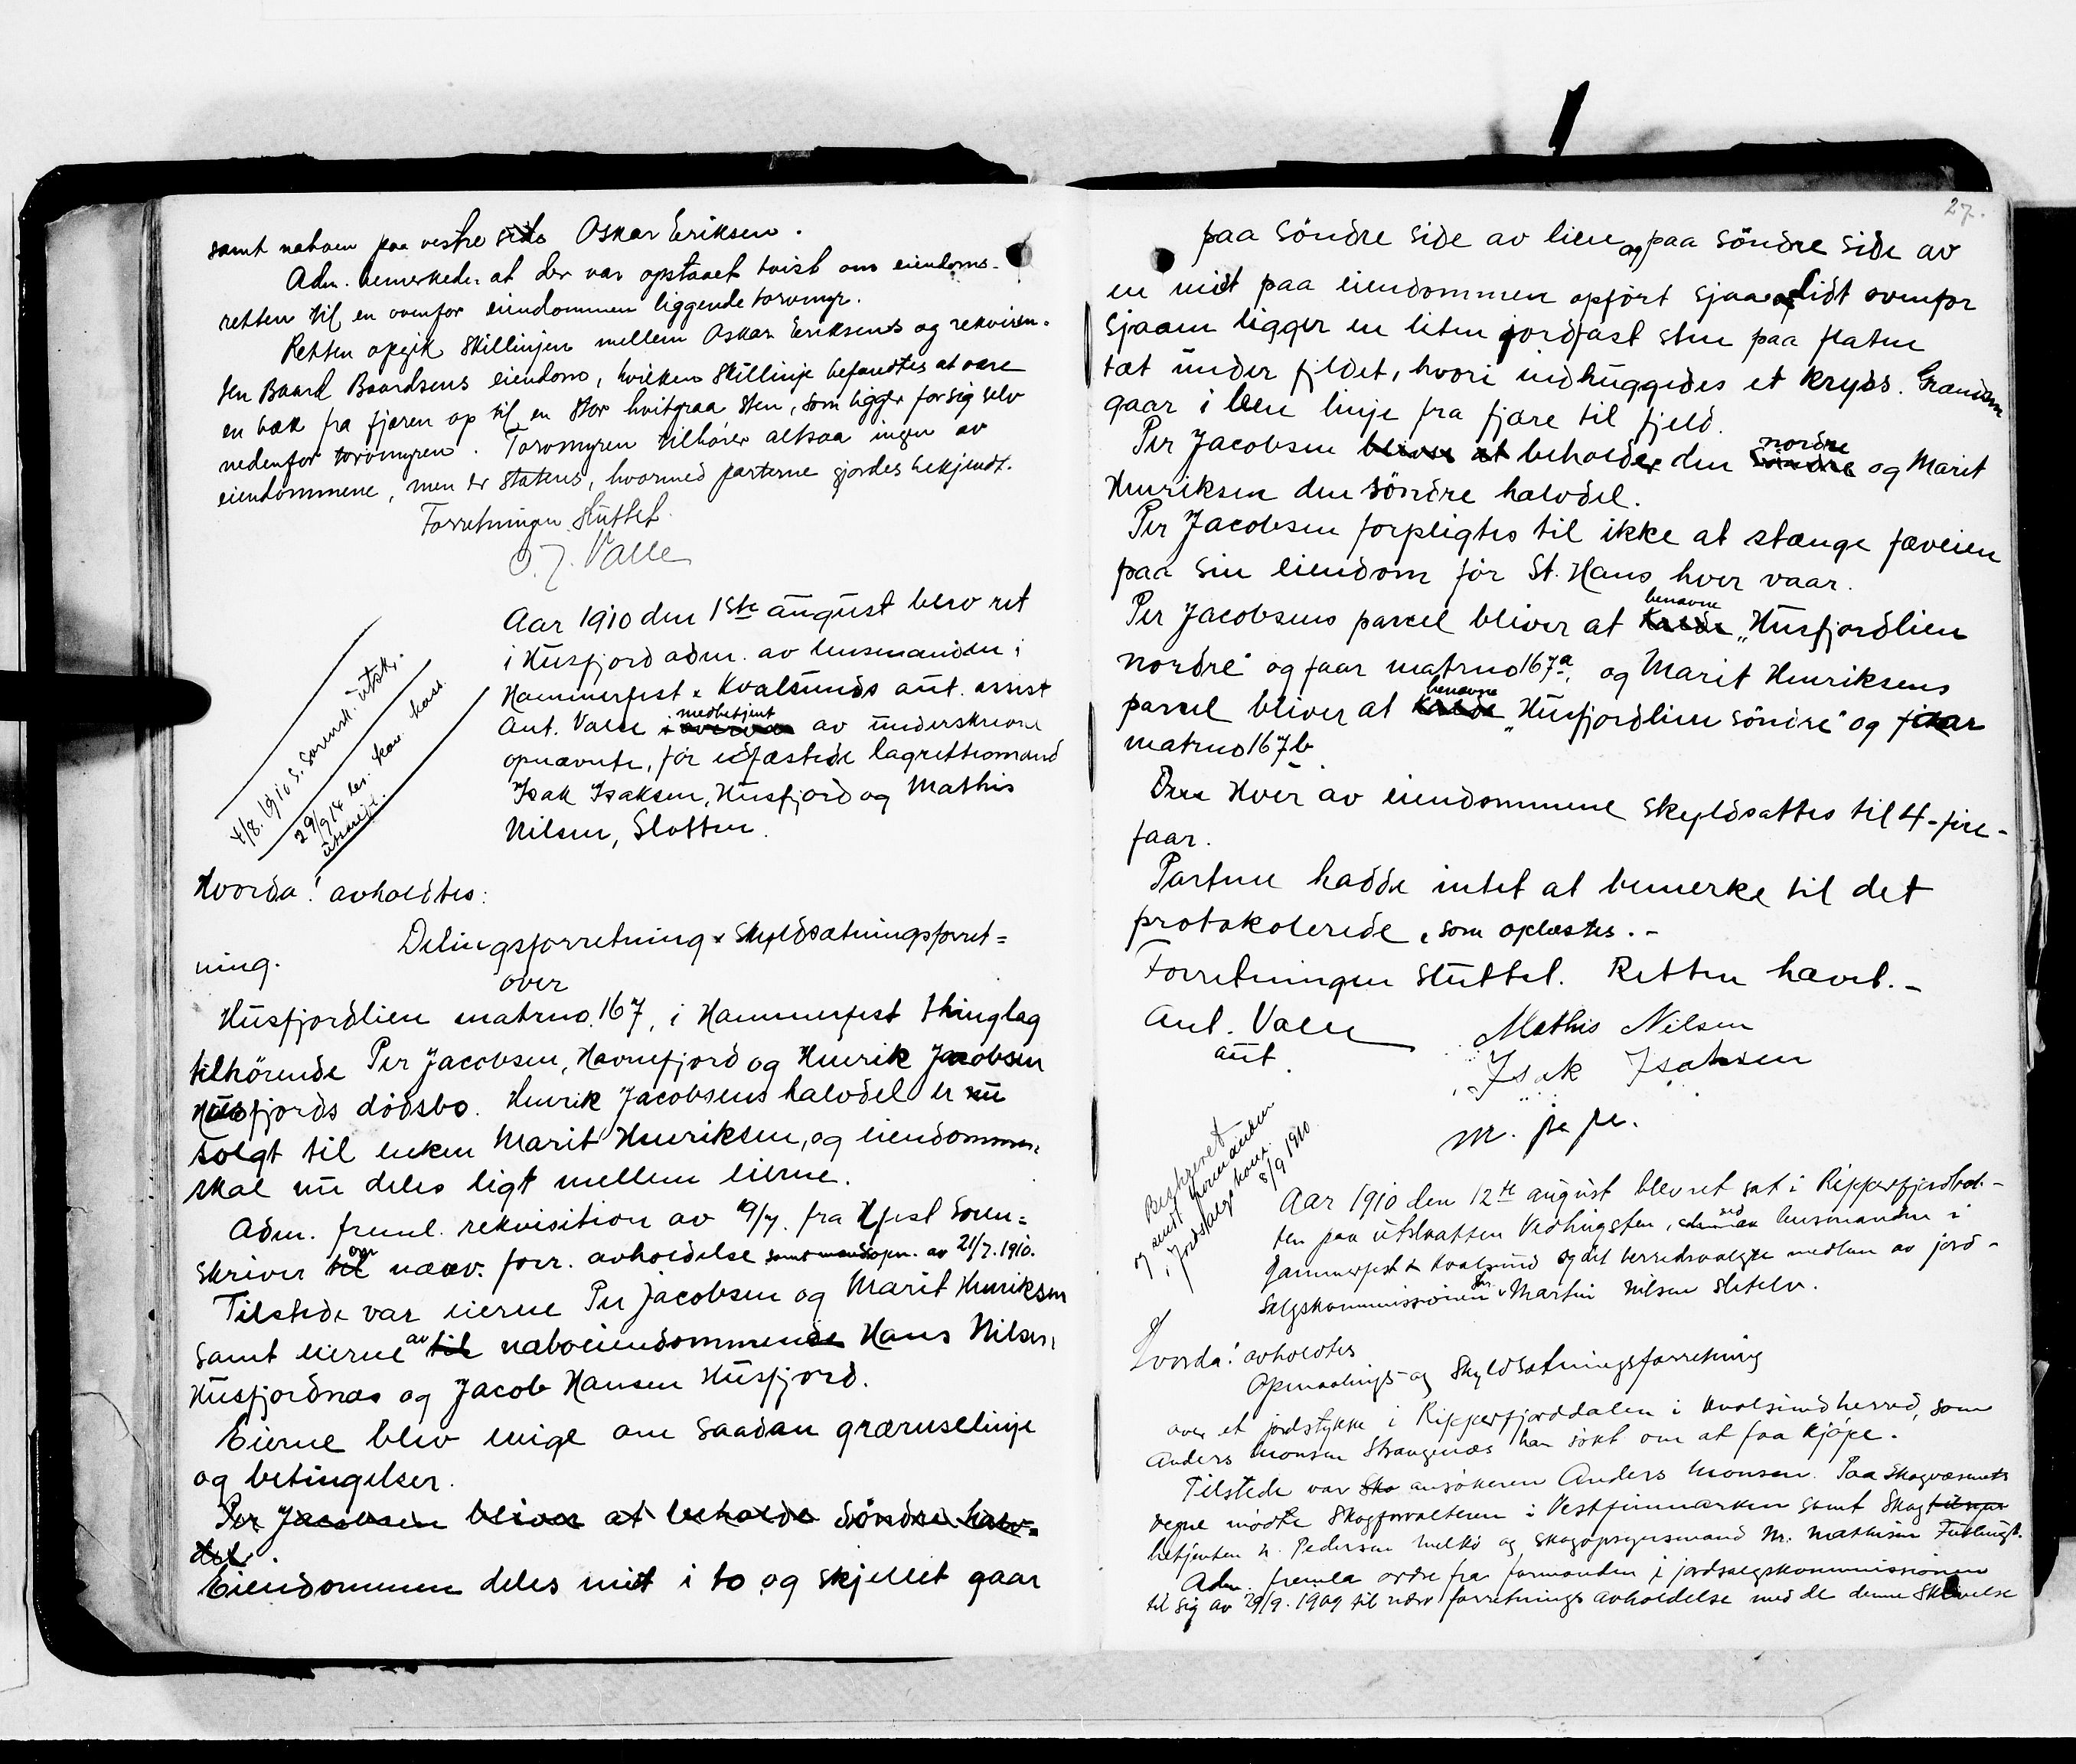 samt naboen paa vestre side Oskar Eriksen.
Adm. bemerkede: at der var opstaaet tvist om eiendoms-
retten til en ovenfor eiendommen liggende torvmyr.
Retten opgik skillinjen mellem Oskar Eriksens og rekviren-
ten Baard Baardsens eiendom, hvilken skillinje befandtes at være
en bæk fra fjæren op til en stor hvitgraa sten, som ligger for sig selv
nedenfor torvmyren. Torvmyren tilhører altsaa ingen av
eiendommene, men er statens, hvormed parterne gjordes bekjendt.
Forretningen sluttet.
O. J. Valle
Aar 1910 den 1ste august blev ret
i Husfjord adm. av lensmanden i
Hammerfest & Kvalsunds aut. assist
Ant. Valle medbetjent av underskrevne
opnævnte, før edfæstede lagrettemænd
Isak Isaksen, Husfjord og Mathis
Nilsen, Slotten.
4/8. 1910 S. Sorensk. utskr.
29/9 14 bes. kav. kass.
utskrift.
Hvorda! avholdtes:
Delingsforretning & skyldsætningsforret=
ning.
over
Husfjordlien matrno. 167, i Hammerfest thinglag
tilhörende Per Jacobsen, Havnefjord og Henrik Jacobsen
Husfjords dödsbo. Henrik Jacobsens halvdel er nu
solgt til enken Marit Henriksen, og eiendommen
skal nu deles ligt mellem eierne.
Adm. freml. rekvisition av 19/7. fra Hfest Soren=
skriver til om nævv. forr. avholdelse samt mandsopn. av 21/7. 1910.
Tilstede var eierne Per Jacobsen og Marit Henriksen
samt eierne av til naboeiendommende Hans Nilsen
Husfjordnæs og Jacob Hansen Husfjord.
Eierne blev enige om saadan grænselinje
og betingelser.
Per Jacobsen bliver at beholde söndre halv-
del.
Eiendommen deles midt i to og skjellet gaar
27.
paa söndre side av lien og paa söndre side av
en midt paa eiendommen opfört sjaa og lidt ovenfor
sjaaen ligger en liten jordfast sten paa flaten
tæt under fjeldet, hvori indhuggedes et kryds. Grændsen
gaar i linje fra fjære til fjeld.
Per Jacobsen bliver at beholder den söndre nordre og Marit
Henriksen den söndre halvdel.
Per Jacobsen forpligtes til ikke at stænge fæveien
paa sin eiendom för St. Hans hver vaar.
Per Jacobsens parcel bliver at benævne „Husfjordlien
nordre" og faar matrno 167a, og Marit Henriksens
parcel bliver at benævne „Husfjordlien söndre" og faar
matrno 167b.
Hver av eiendommene skyldsattes til 4 - fire -
faar.
Partene hadde intet at bemerke til det
protokolerede, som oplæstes. -
Forretningen sluttet. Retten hævet. -
Ant. Valle
aut.
Mathis Nilsen
Isak Isaksen
m. p. p.
8/9 1910
Aar 1910 den 12te august blev ret sat i Ripperfjordbot-
ten paa utslaatten Vedhugsten, ved lensmanden i
Hammerfest & Kvalsund og det herredsvalgte medlem av jord-
salgskommissionen Martin Nilsen Sletelv.
Hvorda! avholdtes
Opmaalings- og skyldsætningsforretning
over et jordstykke i Ripperfjorddalen i Kvalsund herred, som
Anders Monsen Strangenæs har søkt om at faa kjöpe.
Tilstede var Sko ansøkeren Anders Monsen. Paa Skogvæsenets
vegne mödte skogforvalteren i Vestfinmarken samt skog
betjenten N. Pedersen og skogopsynsmand M. Mathisen
Adm. fremla ordre fra formanden i jordsalgskommissionen
til sig av 29/9. 1909 til nævv. forretnings avholdelse med de denne skrivelse